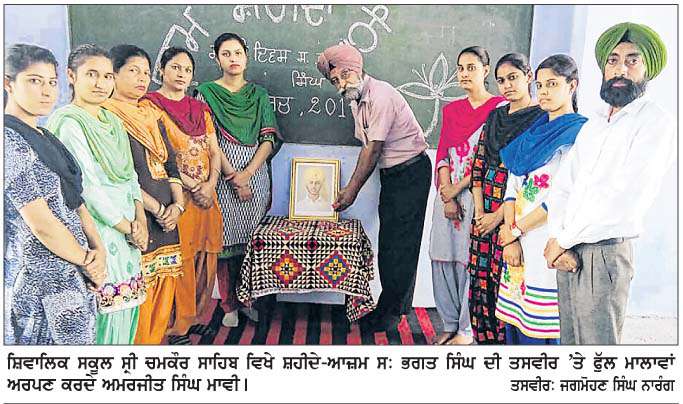 ਸ਼ਹੀਦਾਂ ਨੂੰ
ਦਿਵਸ ਸ:
ਸਿੰਘ
ਸ਼ਿਵਾਲਿਕ ਸਕੂਲ ਸ੍ਰੀ ਚਮਕੌਰ ਸਾਹਿਬ ਵਿਖੇ ਸ਼ਹੀਦੇ-ਆਜ਼ਮ ਸ: ਭਗਤ ਸਿੰਘ ਦੀ ਤਸਵੀਰ 'ਤੇ ਫੁੱਲ ਮਾਲਾਵਾਂ
ਅਰਪਣ ਕਰਦੇ ਅਮਰਜੀਤ ਸਿੰਘ ਮਾਵੀ। ਤਸਵੀਰ: ਜਗਮੋਹਣ ਸਿੰਘ ਨਾਰੰਗ